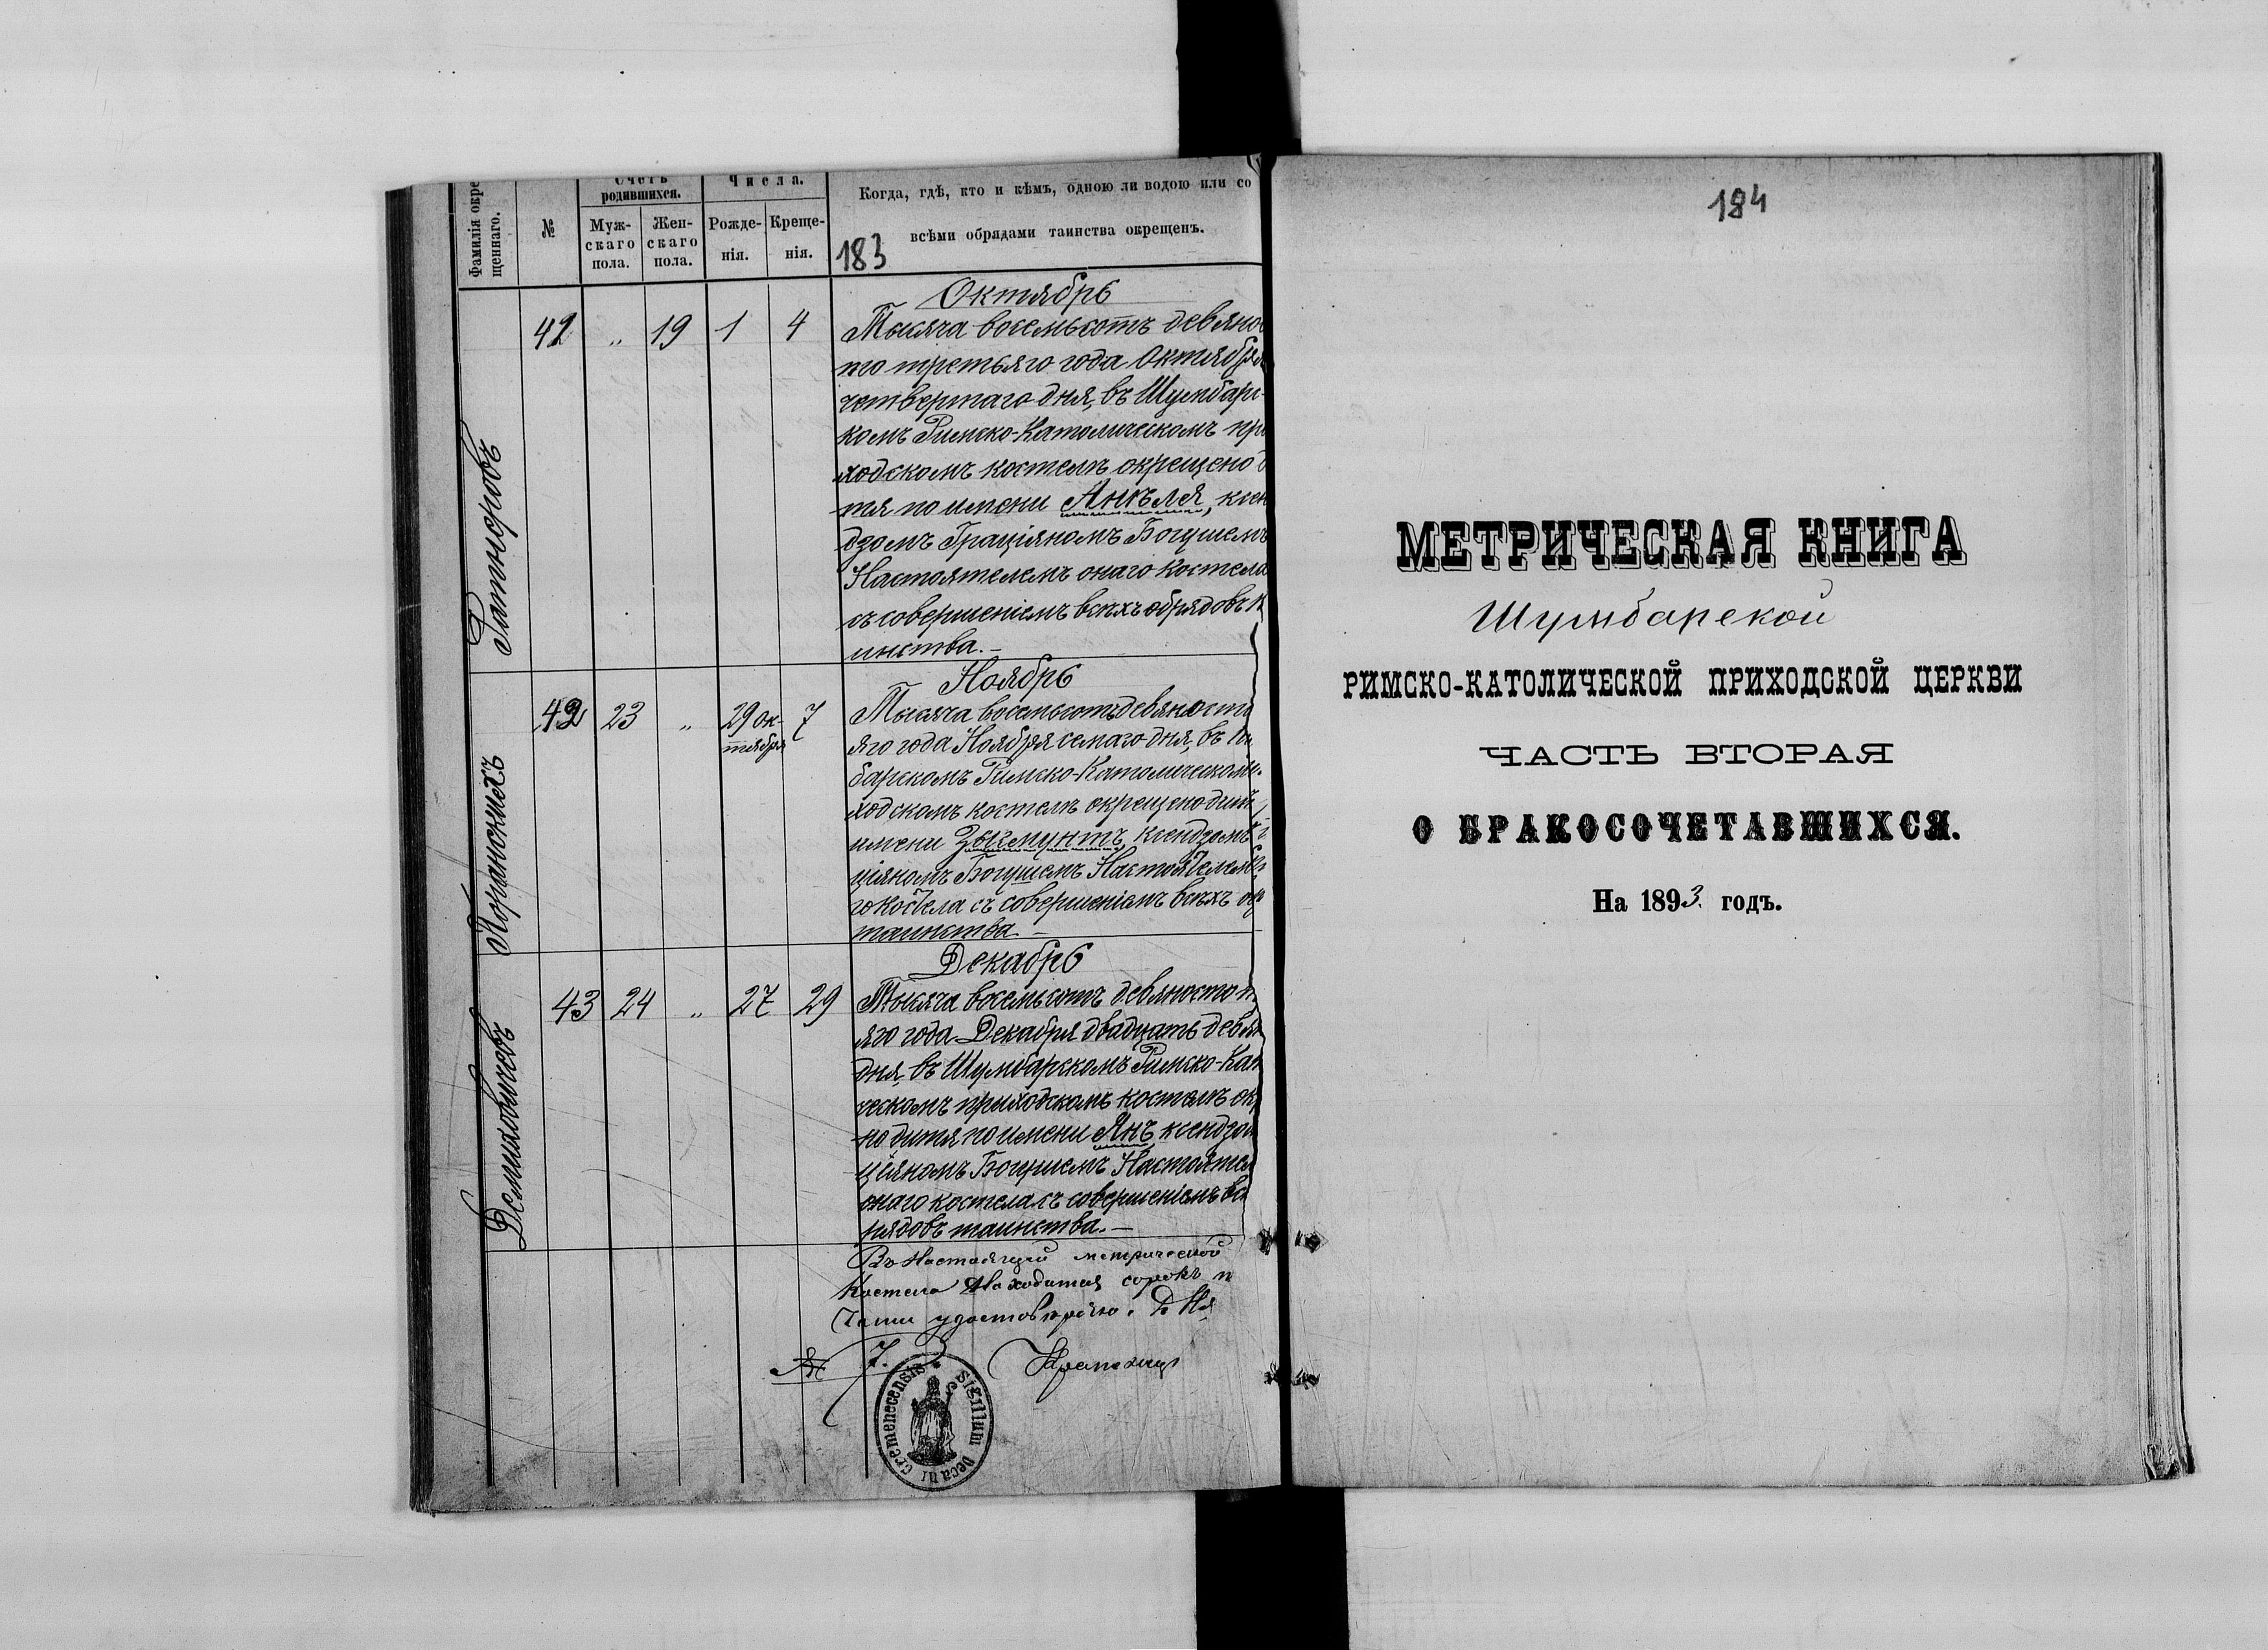 Фамилія окре
щеннаго.
№
Счетъ
родившихся.
Муж-
скаго
пола.
Жен-
скаго
пола.
Числа.
Рожде-
нія.
Креще-
нія.
Когда, гдѣ, кто и кѣмъ, одною ли водою или со
всѣми обрядами таинства окрещенъ.
183
Октябрь
41 „ 19 1 4
Тысяча восемьсотъ девянос
то третьяго года Октября
четвертаго дня, въ Шумбарс-
комъ Римско-Католическомъ при
ходскомъ костелѣ окрещено д
тя по имени Анѣля, ксен
дзомъ Граціяномъ Богушемъ
Настоятелемъ онаго костела
съ совершеніемъ всѣхъ обрядовъ
инства.-
Ноябрь
42 23 „ 29 Ок-
тября
7
Тысяча восемьсотъ девяносто
яго года Ноября семаго дня, въ
барскомъ Римско-Католическомъ
ходскомъ костелѣ окрещено дитя
имени Зыгмунтъ, ксендзомъ
ціяномъ Богушемъ Настоятелемъ
го костела съ совершеніемъ всѣхъ об
таинства -
Поранскихъ
Декабрь
43 24 „ 27 29
Тысяча восемьсотъ девяносто т
яго года Декабря двадцать девят
дня, въ Шумбарскомъ Римско-Кат
ческомъ приходскомъ костелѣ ок
но дитя по имени Янъ, ксендзом
ціяномъ Богушемъ Настоятел
онаго костела съ совершеніемъ вс
рядовъ таинства.-
Демидовичевъ
Въ Настоящей метрической
Костела Находится сорокъ
удостовѣряю.
Sigillum Decani Cremenecensis
184
МЕТРИЧЕСКАЯ КНИГА
Шумбарской
РИМСКО-КАТОЛИЧЕСКОЙ ПРИХОДСКОЙ ЦЕРКВИ
ЧАСТЬ ВТОРАЯ
О БРАКОСОЧЕТАВШИХСЯ.
На 1893 годъ.